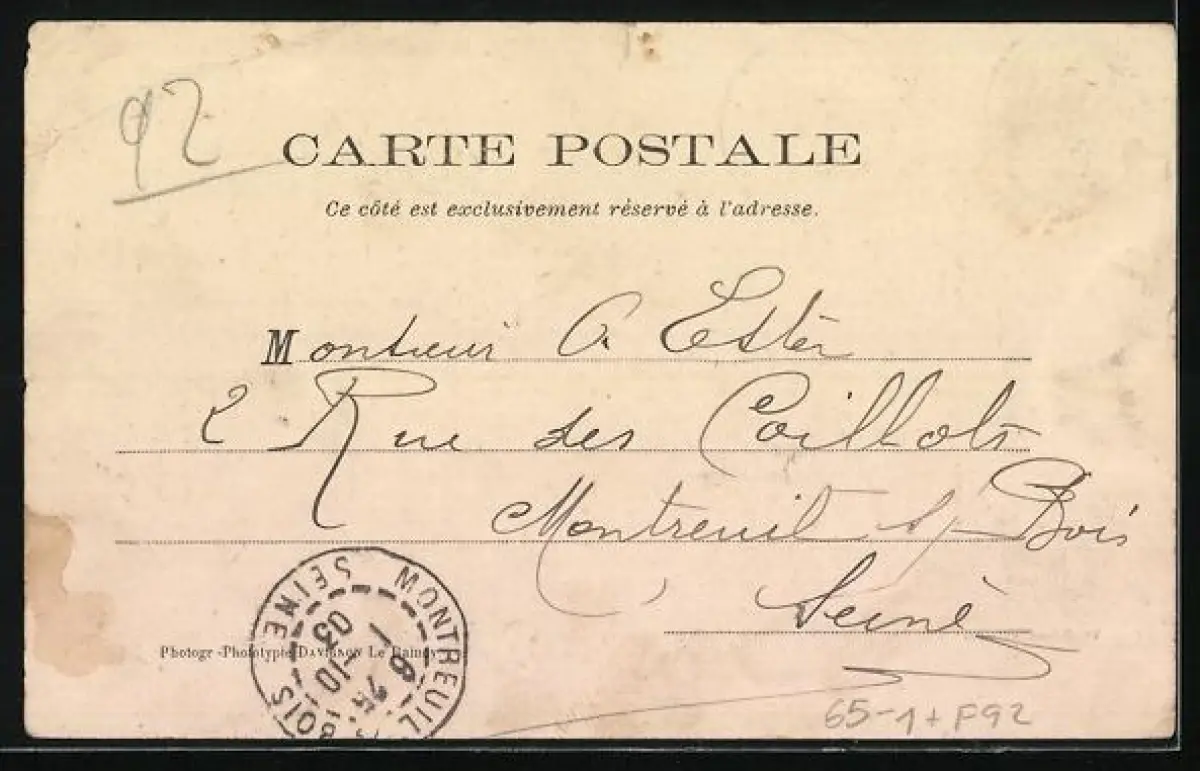 92
CARTE POSTALE
Ce côté est exclusivement réservé à l'adresse.
Monsieur
2 Rue des Caillots
Montreuil s/ Bois
Seine
MONTREUIL S. BOIS SEINE
10 03
Photogr.-Phototypie DAVIGNON Le Raincy
65-1+F92